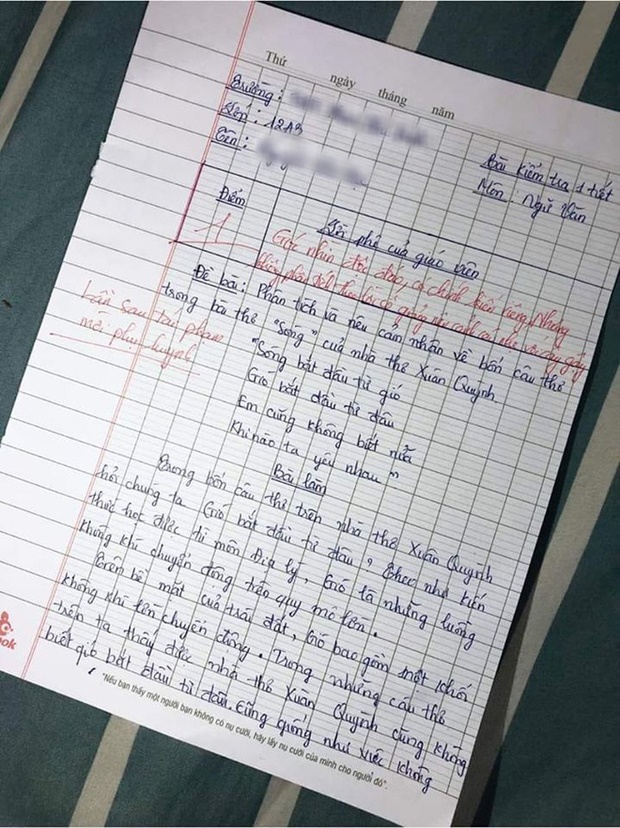 Thứ ngày tháng năm
Trường:
Lớp: 12A3
Tên:
Bài kiểm tra 1 tiết
Môn: Ngữ Văn
Điểm
Lời phê của giáo viên
1
Góc nhìn độc đáo, có chính kiến riêng. Nhưng
Lần sau tái phạm
mời phụ huynh
Đề bài: Phân tích và nêu cảm nhận về bốn câu thơ
trong bài thơ "Sóng" của nhà thơ Xuân Quỳnh
"Sóng bắt đầu từ gió
Gió bắt đầu từ đâu
Em cũng không biết nữa
Khi nào ta yêu nhau"
Bài làm
Trong bốn câu thơ trên nhà thơ Xuân Quỳnh
hỏi chúng ta Gió bắt đầu từ đâu? Theo như kiến
thức học được từ môn Địa lý, Gió là những luồng
không khí chuyển động trên quy mô lớn.
Trên bề mặt của trái đất, Gió bao gồm một khối
không khí lớn chuyển động. Trong những câu thơ
trên ta thấy được nhà thơ Xuân Quỳnh cũng không
biết gió bắt đầu từ đâu. Cũng giống như việc không
"Nếu bạn thấy một người bạn không có nụ cười, hãy lấy nụ cười của mình cho người đó".
ok